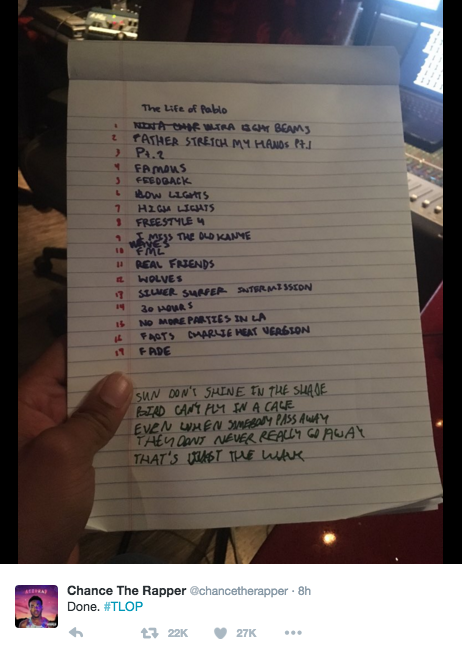 The Life of Pablo
1 NINA CHOP ULTRA LIGHT BEAMS
2 FATHER STRETCH MY HANDS Pt.1
3 Pt. 2
4 FAMOUS
5 FEEDBACK
6 LOW LIGHTS
7 HIGH LIGHTS
8 FREESTYLE 4
9 I MISS THE OLD KANYE
WAVES
10 FML
11 REAL FRIENDS
12 WOLVES
13 SILVER SURFER INTERMISSION
14 30 HOURS
15 NO MORE PARTIES IN LA
16 FACTS CHARLIE HEAT VERSION
17 FADE
SUN DON'T SHINE IN THE SHADE
BIRD CAN'T FLY IN A CAGE
EVEN WHEN SOMEBODY PASS AWAY
THEY DONT NEVER REALLY GO AWAY
THAT'S JUST THE WAVE
Chance The Rapper @chancetherapper · 8h
Done. #TLOP
22K 27K